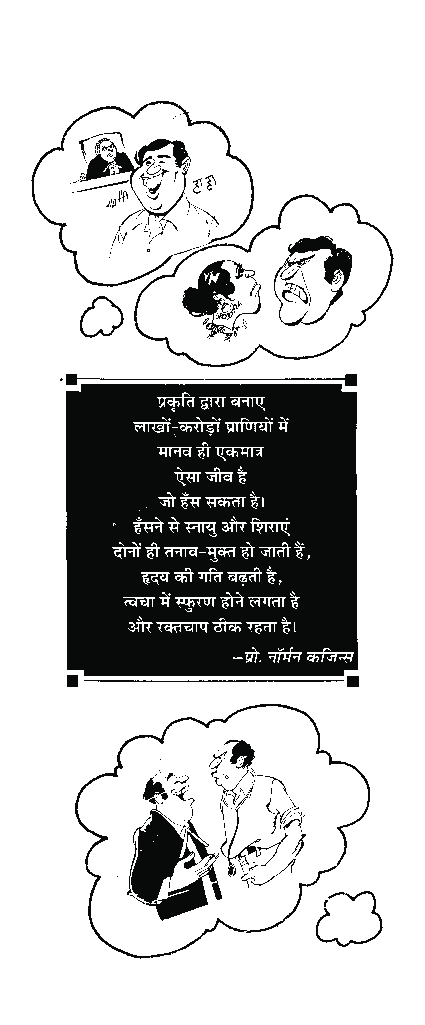 हा हा
प्रकृति द्वारा बनाए
लाखों-करोड़ों प्राणियों में
मानव ही एकमात्र
ऐसा जीव है
जो हँस सकता है।
हँसने से स्नायु और शिराएं
दोनों ही तनाव-मुक्त हो जाती हैं,
हृदय की गति बढ़ती है,
त्वचा में स्फुरण होने लगता है
और रक्तचाप ठीक रहता है।
–प्रो. नॉर्मन कजिन्स